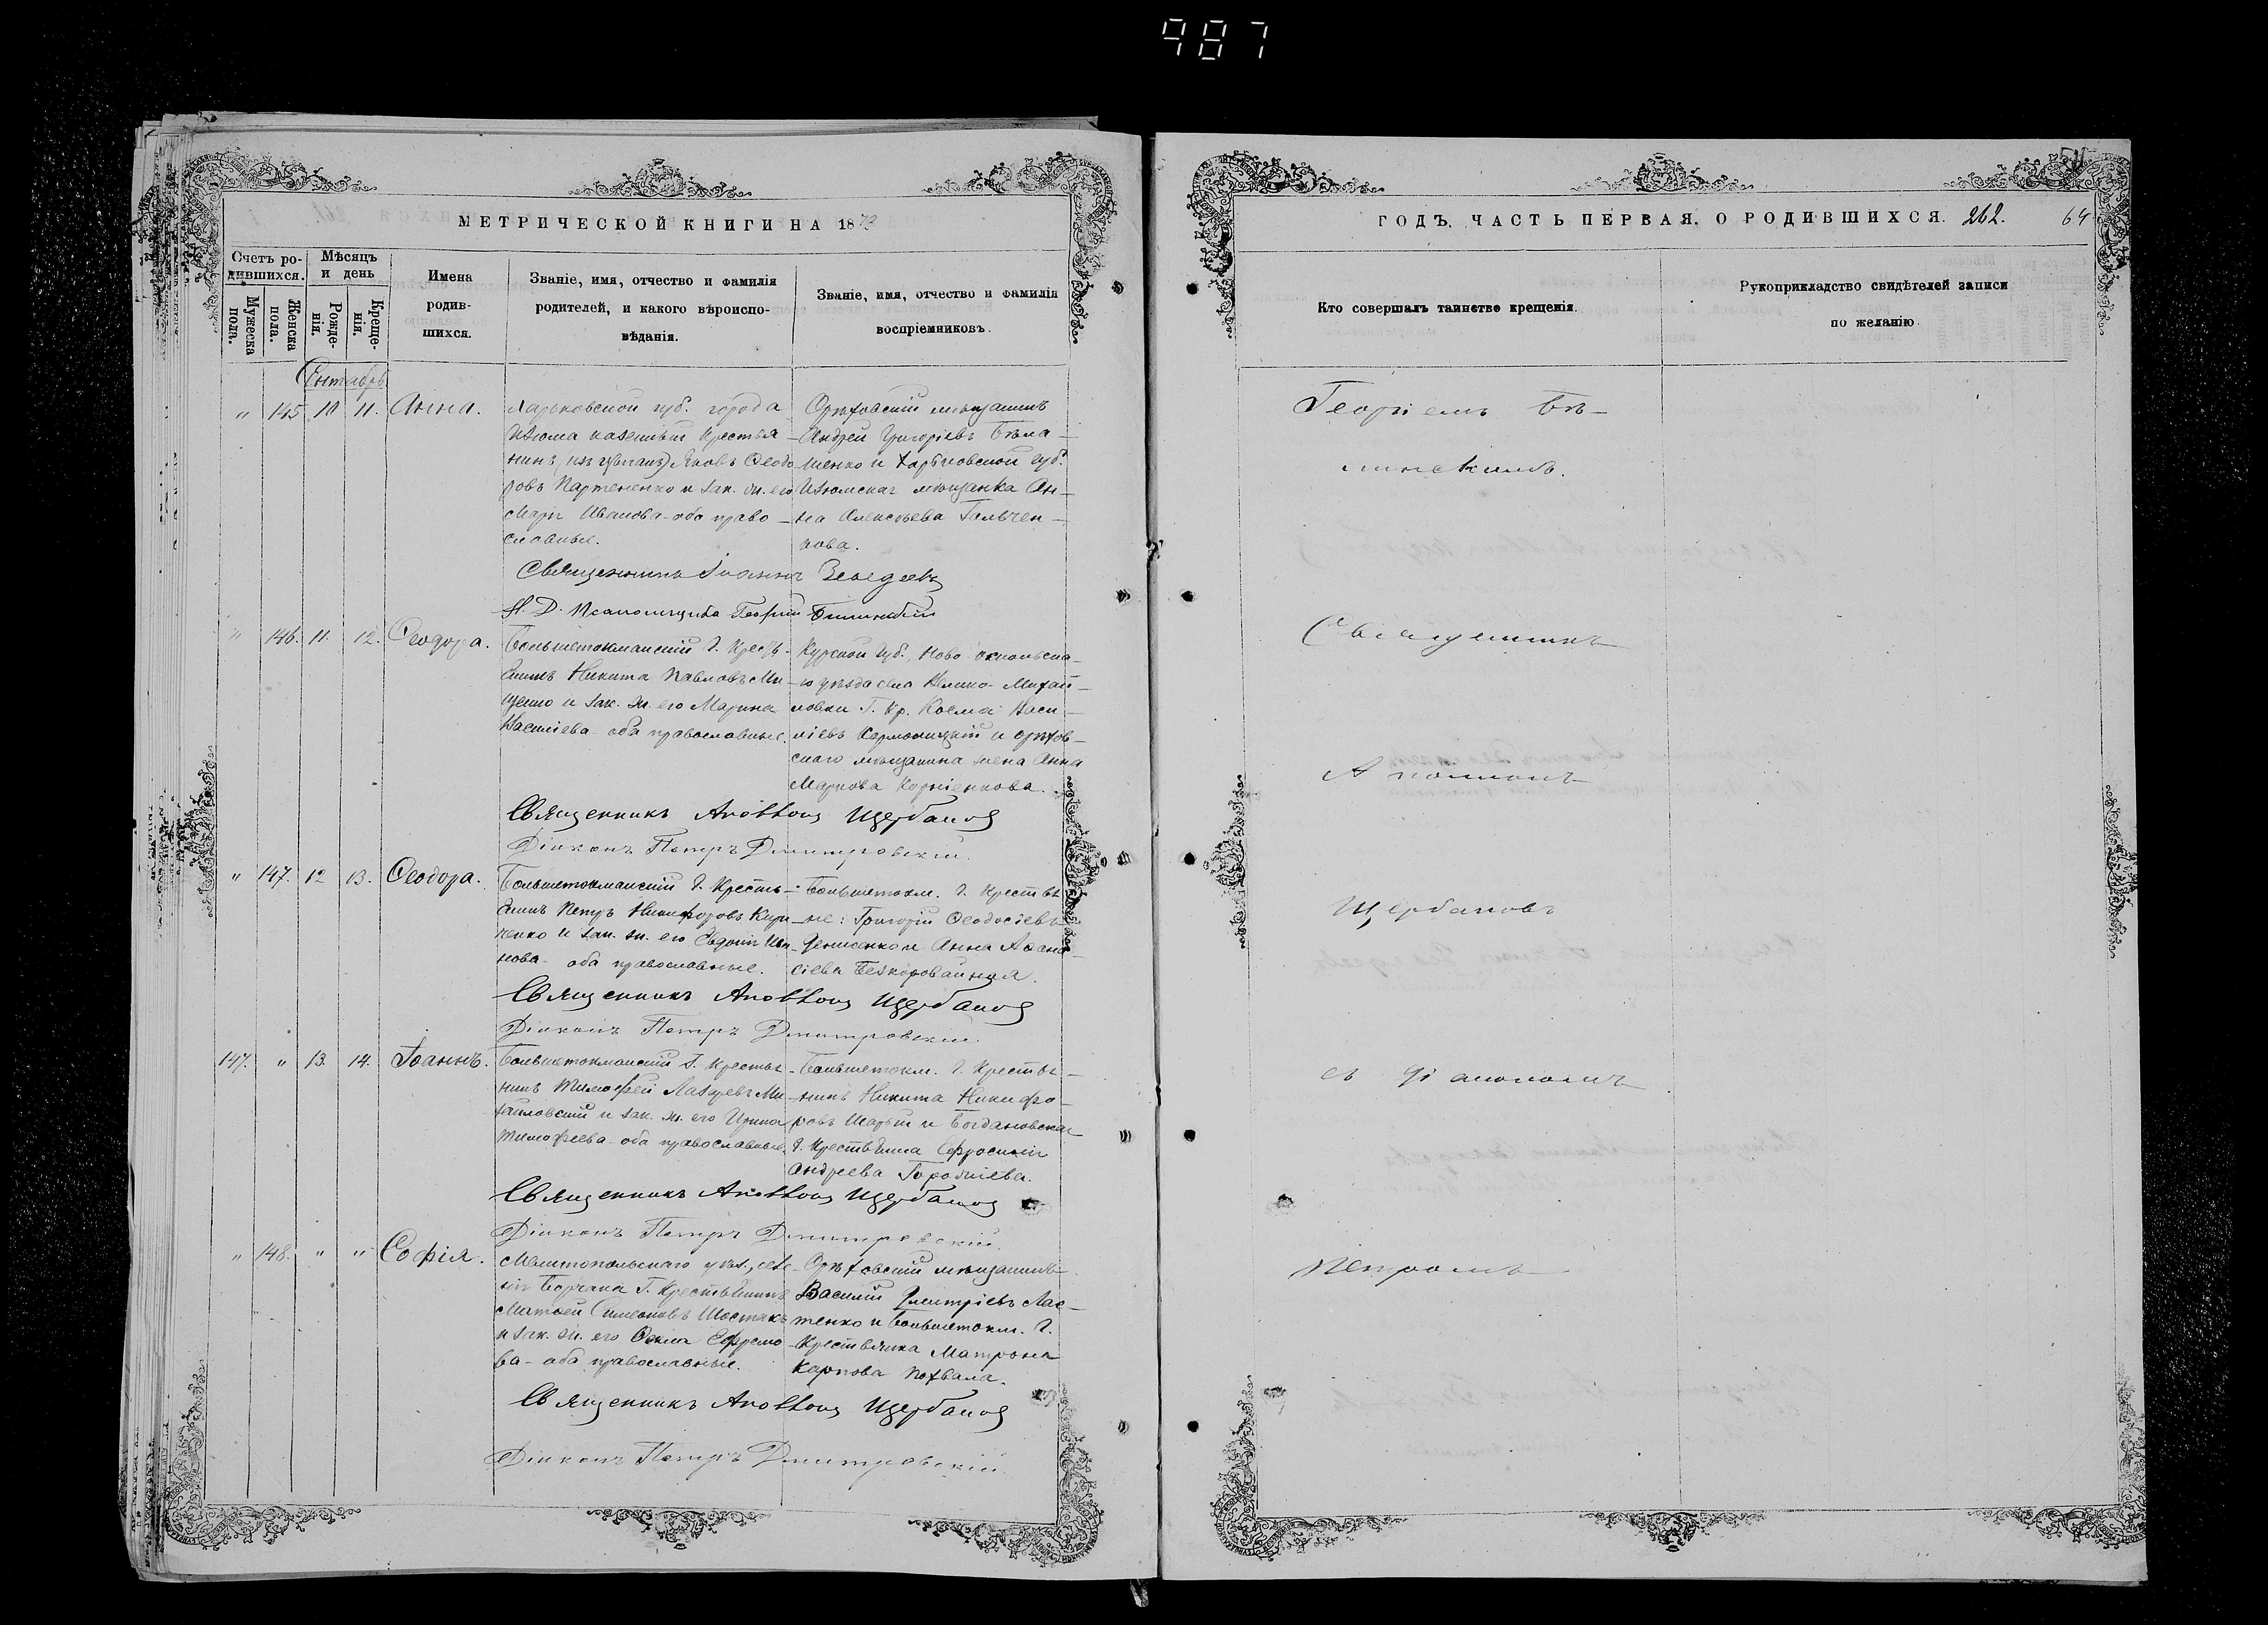 987
МЕТРИЧЕСКОЙ КНИГИ НА 1873
Счетъ ро-
дившихся.
Мужеска пола.
Женска пола.
Мѣсяцъ
и день
Рожде-
нія.
Креще-
нія.
Имена
родив-
шихся.
Званіе, имя, отчество и фамилія
родителей, и какого вѣроиспо-
вѣданія.
Званіе, имя, отчество и фамилія
воспріемниковъ.
Сентябрь
" 145 10 11. Анна.
Харьковской губ. города
Изюма казенный крестья-
нинъ Яковъ Ѳеодо
ровъ Пархоменко и зак. ж. его
Марія Иванова - оба право-
славные.
Орѣховскій мѣщанинъ
Андрей Григоріевъ Бѣла-
шенко и Харьковской губ.
Изюмская мѣщанка Ан-
на Алексѣева Гальчен-
кова.
Священникъ Іоаннъ Зеведеевъ
И. Д. Псаломщика Георгій
" 146. 11. 12. Ѳеодора.
Большетокмакскій Г. Кресть-
янинъ Никита Павловъ Ми-
щенко и зак. ж. его Марина
Василіева - оба православные.
Курской губ. Ново оскольска-
го уѣзда села Велико-Михай-
ловки Г. Кр. Косма Васи-
ліевъ и орѣхов-
скаго мѣщанина жена Анна
Маркова Корніенкова.
Священникъ Аполлонъ Щербаковъ
Діаконъ Петръ Дмитровскій.
" 147. 12 13. Ѳеодора.
Большетокмакскій Г. Кресть-
янинъ Петръ Никифоровъ Кири-
ченко и зак. ж. его Евдокія Ива-
нова - оба православные.
Большеток. Г. Крестья
не: Григорій Ѳеодосіевъ
Денисенко и Анна Аѳана-
сіева Безкоровайная.
Священникъ Аполлонъ Щербаковъ
Діаконъ Петръ Дмитровскій.
147. " 13. 14. Іоаннъ.
Большетокмакскій Г. Крестья-
нинъ Тимофей Лазаревъ Ми-
хайловскій и зак. ж. его Ирина
Тимофеева - оба православные.
Большетокм. Г. Крестья-
нинъ Никита Никифо-
ровъ Шарый и Богдановская
Г. Крестьянка Ефросинія
Андреева
Священникъ Аполлонъ Щербаковъ
Діаконъ Петръ Дмитровскій.
" 148. " " Софія.
Мелитопольскаго уѣз., селе-
нія Г. Крестьянинъ
Матѳей Симеоновъ Шостакъ
и зак. ж. его Ѳекла Ефремо-
ва - оба православные.
Орѣховскій мѣщанинъ
Василій Дмитріевъ Лас-
тенко и Большетокм. Г.
Крестьянка Матрона
Карпова Похвала.
Священникъ Аполлонъ Щербаковъ
Діаконъ Петръ Дмитровскій.
ГОДЪ, ЧАСТЬ ПЕРВАЯ, О РОДИВШИХСЯ. 262. 64
Кто совершалъ таинство крещенія.
Рукоприкладство свидѣтелей записи
по желанію.
Георгіемъ
Священникъ
Аполлонъ
Щербаковъ
съ діакономъ
Петромъ